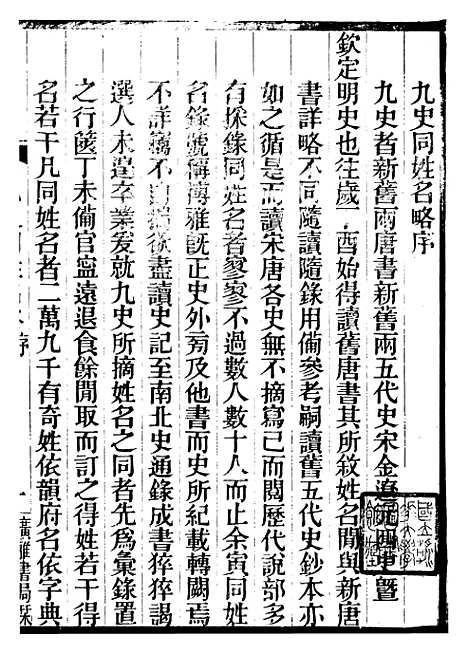 九史同姓名略序
九史者新舊兩唐書新舊兩五代史宋金遼元四史曁
欽定明史也往歲丁酉始得讀舊唐書其所敘姓名閒與新唐
書詳略不同隨讀隨錄用僃參考嗣讀舊五代史鈔本亦
如之循是而讀宋唐各史無不摘寫已而閱歷代說部多
有採錄同姓名者寥寥不過數人數十人而止余寅同姓
名錄號稱博雅旣正史外旁及他書而史所紀載轉闕焉
不詳竊不自揣欲盡讀史記至南北史通錄成書猝猝謁
選人未遑卒業爰就九史所摘姓名之同者先爲彙錄置
之行篋丁未僃官寧遠退食餘閒取而訂之得姓若干得
名若干凡同姓名者二萬九千有奇姓依韻府名依字典
序
一
廣雅書局栞